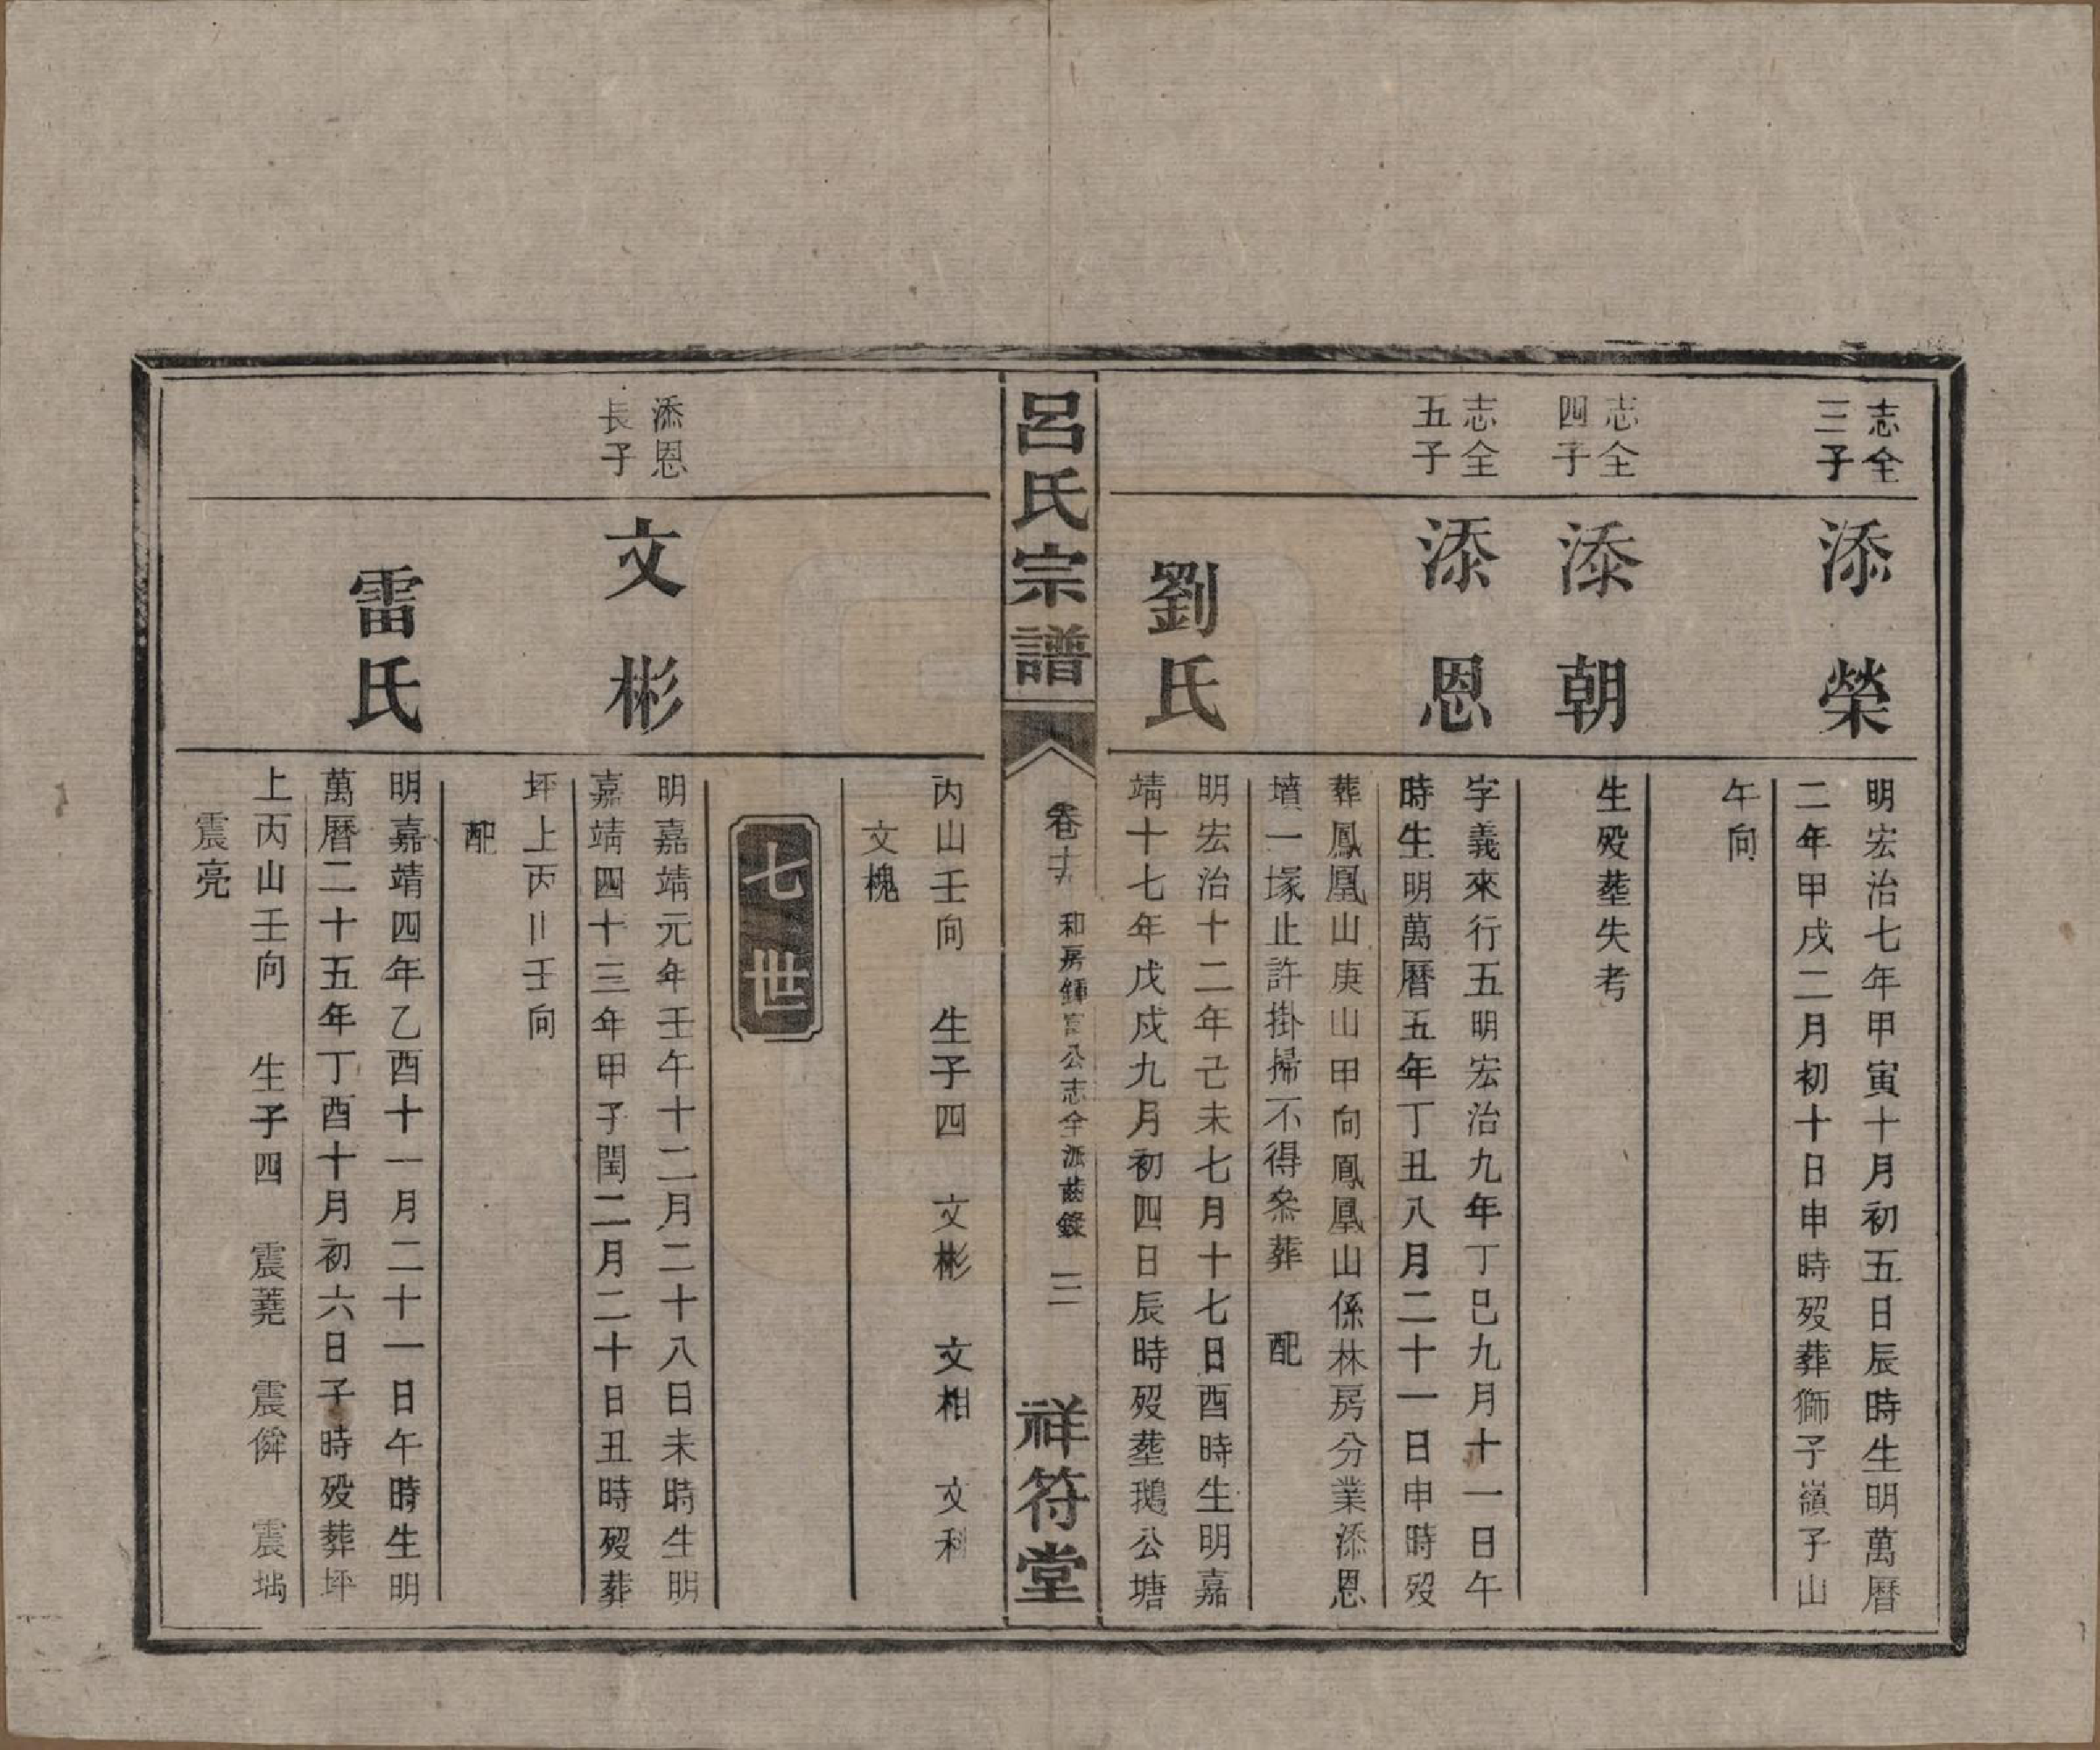 志全
三子
添榮
明宏治七年甲寅十月初五日辰時生明萬曆
二年甲戌二月初十日申時歿葬獅子嶺子山
午向
志全
四子
添朝
生歿塟失考
志全
五子
添恩
字義來行五明宏治九年丁巳九月十一日午
時生明萬曆五年丁丑八月二十一日申時歿
葬鳳凰山庚山甲向鳳凰山係林房分業添恩
墳一塚止許掛掃不得叅葬 配
劉氏
明宏治十二年己未七月十七日酉時生明嘉
靖十七年戊戌九月初四日辰時歿塟鵝公塘
呂氏宗譜
卷 和房鍾官公志全派齒錄 三
祥符堂
丙山壬向 生子四 文彬 文相 文科
文槐
七世
添恩
長子
文彬
明嘉靖元年壬午十二月二十八日未時生明
嘉靖四十三年甲子閏二月二十日丑時歿葬
坪上丙山壬向
配
雷氏
明嘉靖四年乙酉十一月二十一日午時生明
萬曆二十五年丁酉十月初六日子時歿葬坪
上丙山壬向 生子四 震蕘 震僯 震塥
震亮